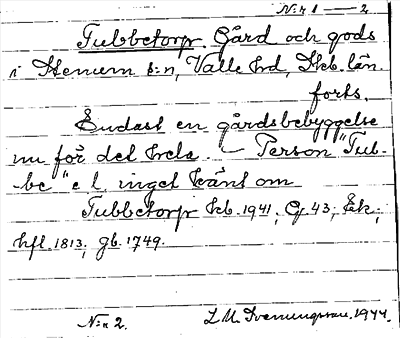 N:r 1 — 2.
Tubbetorp. Gård och gods
i Stenum s:n, Valle hrd, Skb. län.
forts.
Endast en gårdsbebyggelse
nu för det hela. — Person "Tub-
be" e l. inget känt om
Tubbetorp kb. 1941; G. 43; Ek;
hfl. 1813; gb. 1749.
N:r 2.
1944.